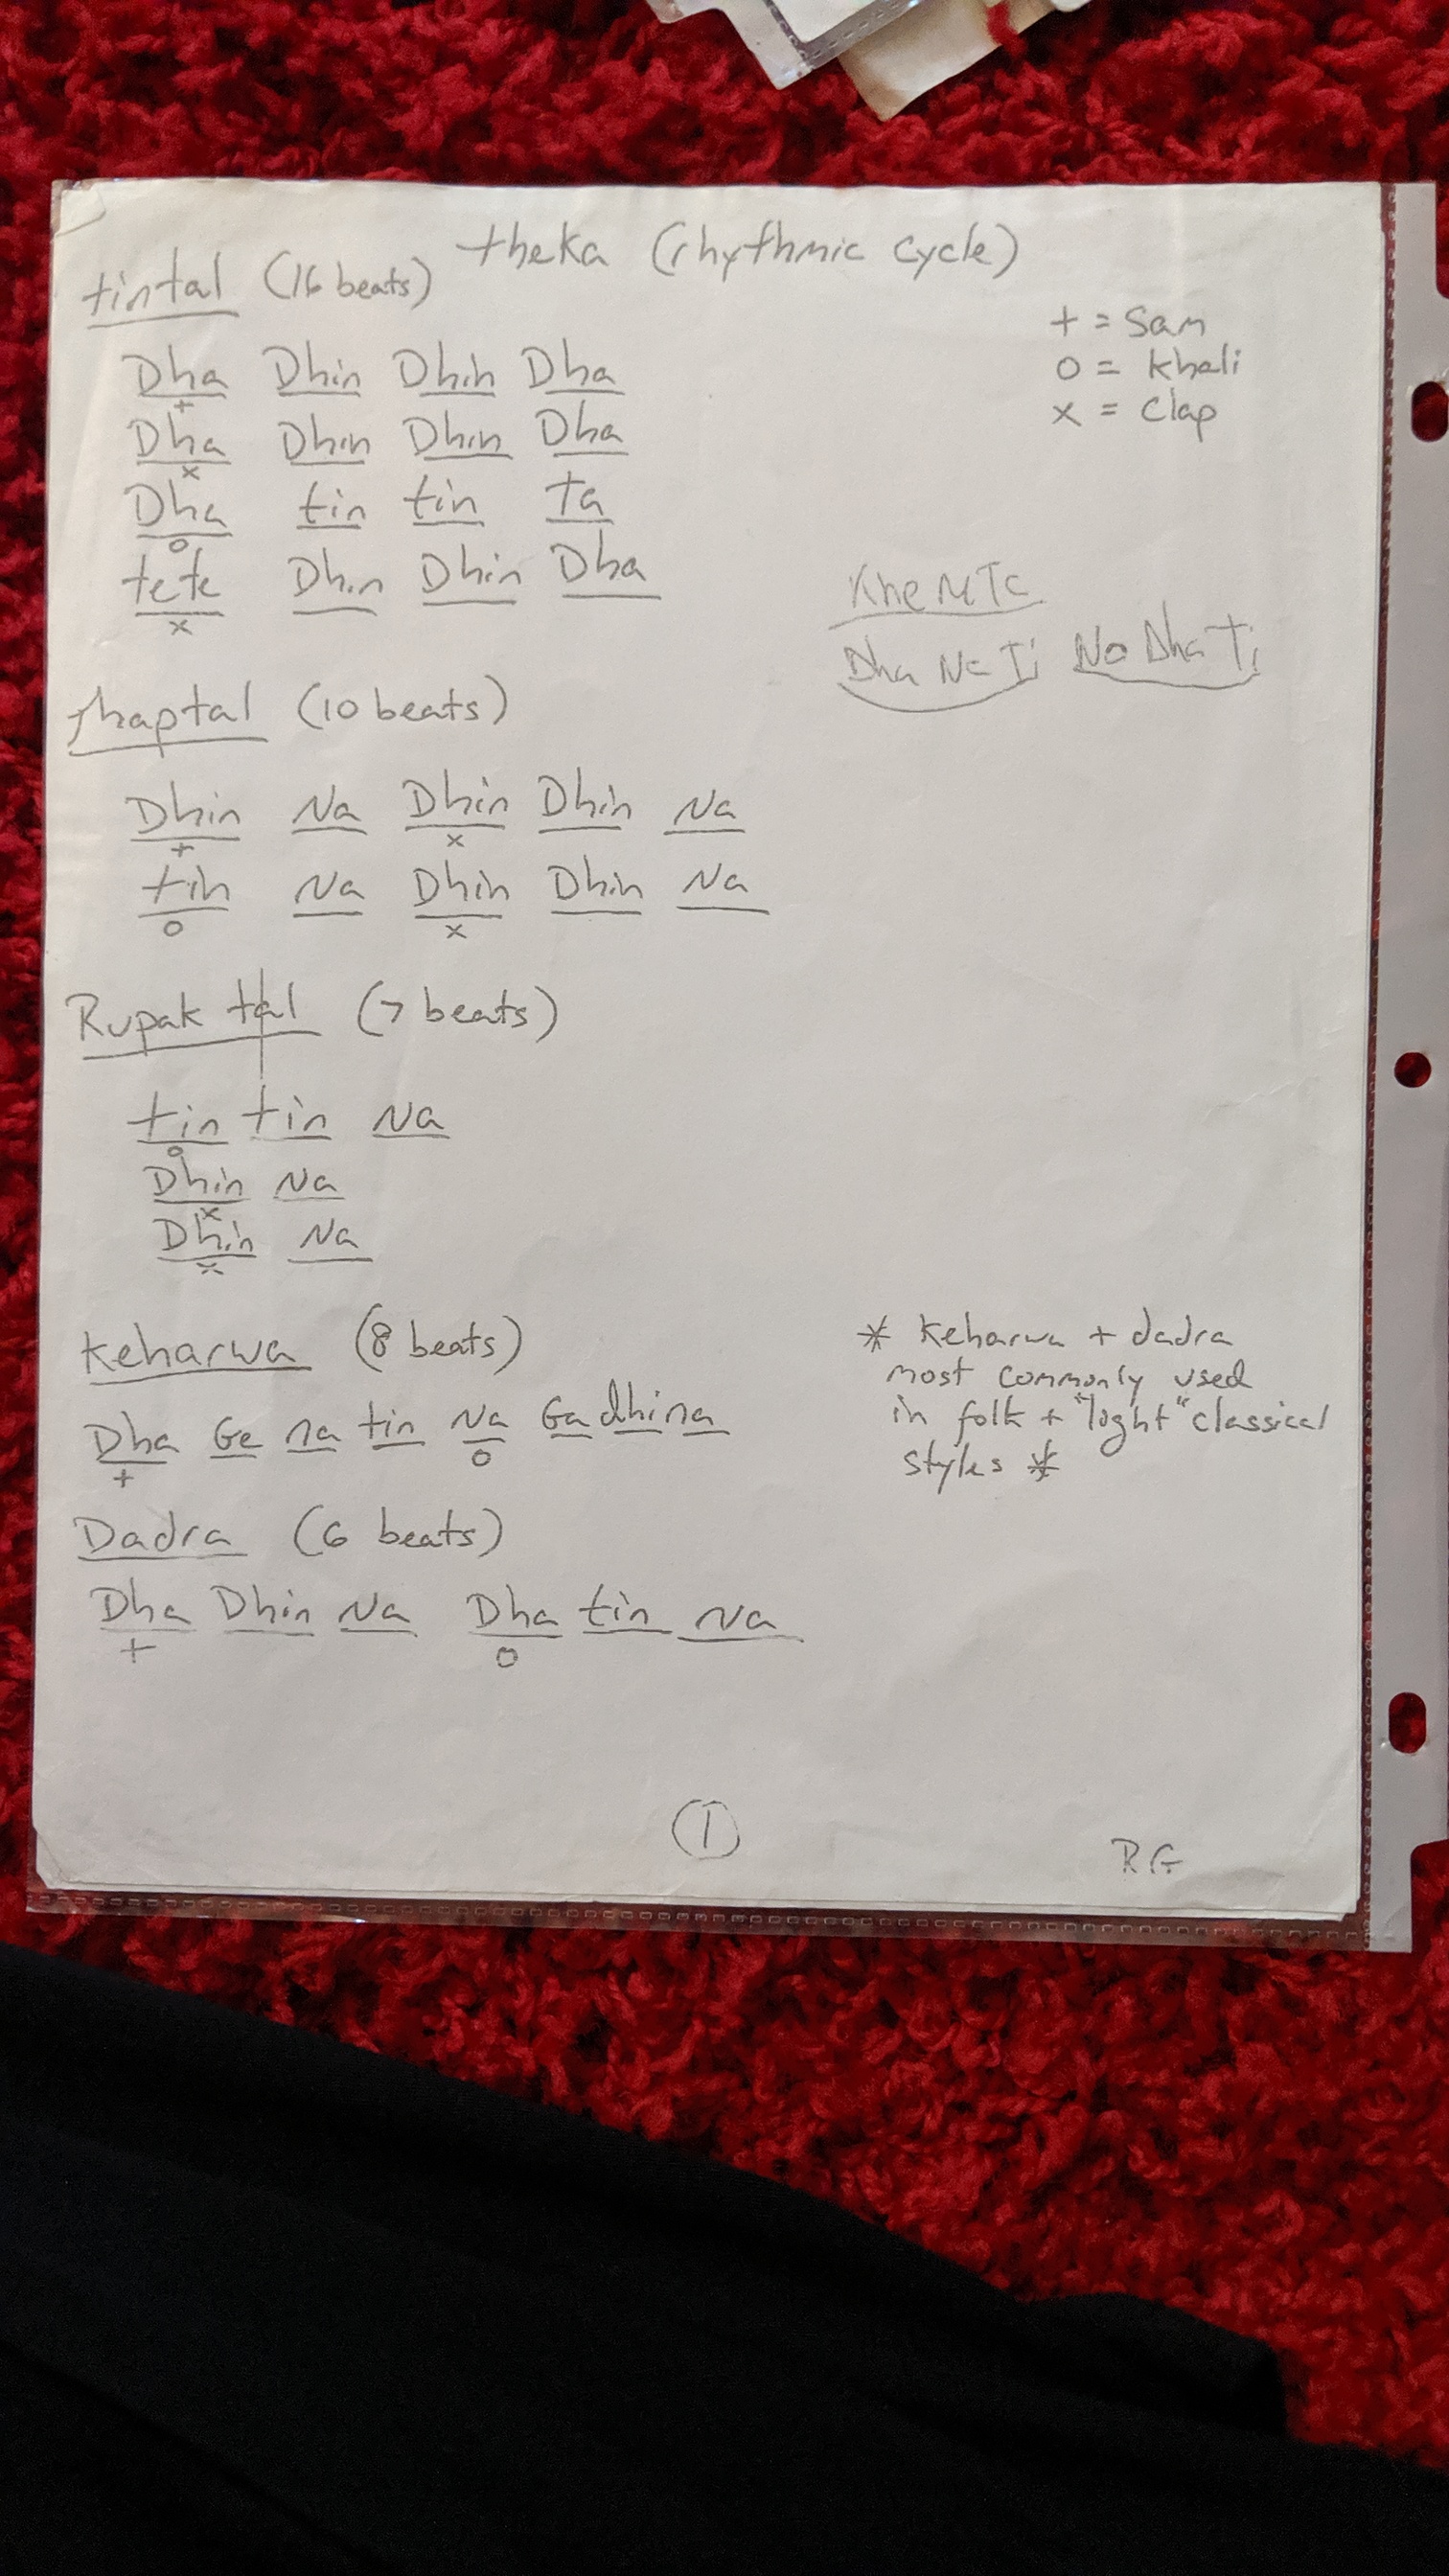 theka (rhythmic cycle)
tintal (16 beats)
+ = Sam
o = khali
x = clap
Dha Dhin Dhin Dha
+
Dha Dhin Dhin Dha
x
Dha tin tin ta
o
tete Dhin Dhin Dha
x
Dha Na Ti Na Dha Ti
jhaptal (10 beats)
Dhin Na Dhin Dhin Na
+ x
tin Na Dhin Dhin Na
o x
Rupak tal (7 beats)
tin tin Na
o
Dhin Na
x
Dhin Na
x
Keharwa (8 beats)
Dha Ge na tin Na Ga dhi na
+ o
* Keharwa + dadra
most commonly used
in folk + "light" classical
styles *
Dadra (6 beats)
Dha Dhin Na Dha tin Na
+ o
1
RG